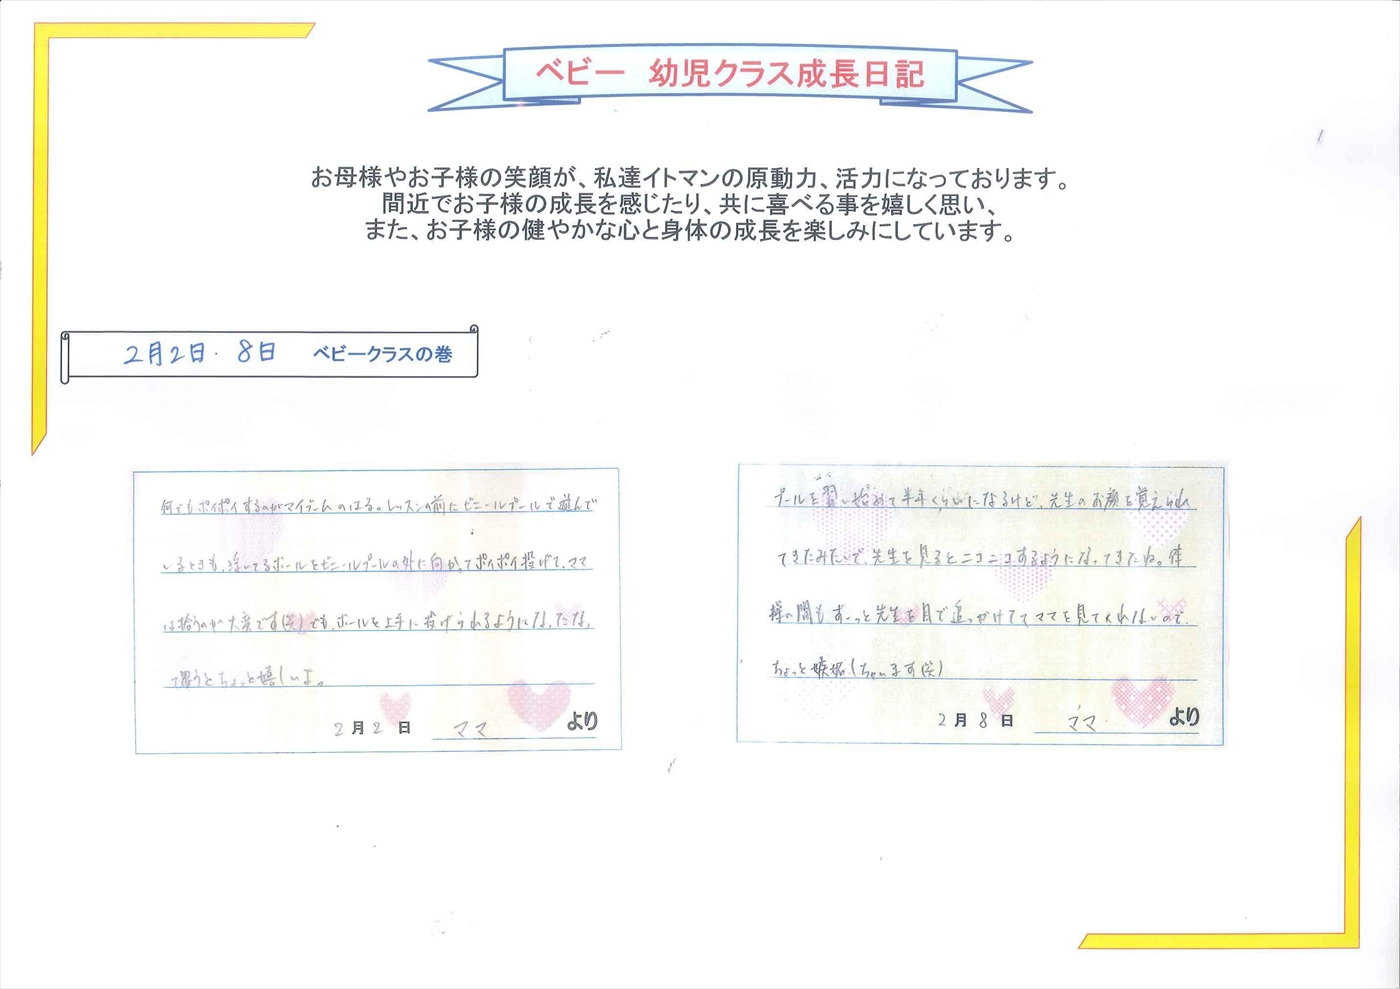 ベビー　幼児クラス成長日記
お母様やお子様の笑顔が、私達イトマンの原動力、活力になっております。
間近でお子様の成長を感じたり、共に喜べる事を嬉しく思い、
また、お子様の健やかな心と身体の成長を楽しみにしています。
2月2日・8日　ベビークラスの巻
何でもポイポイするのがマイブームのはる。レッスンの前にビニールプールで遊んで
いるときも、浮いてるボールをビニールプールの外に向かってポイポイ投げて、ママ
は拾うのが大変です(笑)でも、ボールを上手に投げられるようになったな、
て思うとちょっと嬉しいよ。
2月2日　ママ　より
プールを習い始めて半年くらいになるけど、先生のお顔を覚えられ
てきたみたいで、先生を見るとニコニコするようになってきたね。体
操の間もずーっと先生を目で追っかけててママを見てくれないので、
ちょっと嫉妬しちゃいます(笑)
2月8日　ママ　より